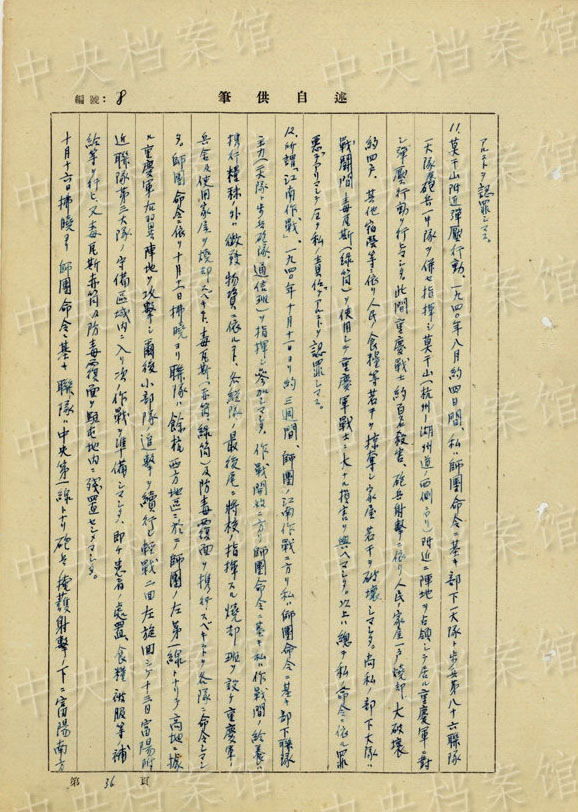 筆供自述
編號：8
アルコトヲ認罪シマス。
11、莫干山附近弾壓行動、一九四〇年八月約四日間、私ハ師團命令ニ基キ部下一大隊ト歩兵第八十六聯隊
一大隊砲兵一中隊ヲ併セ指揮シ莫干山（杭州―湖州道ノ西側ニアリ）附近ニ陣地ヲ占領シテ居ル重慶軍ニ対
シ弾壓行動ヲ行ヒマシタ。此間重慶戦士約百名殺害、砲兵射撃ニ依リ人民ノ家屋ヲ焼却、大破壊
約四戸、其他宿營等ニ依リ人民ノ食糧等若干ヲ掠奪シ家屋若干ヲ破壊シマシタ。尚私ノ部下大隊ハ
戰闘間毒瓦斯（緑筒）ヲ使用シテ重慶軍戦士ニ大ナル損害ヲ與ヘマシタ。以上ハ總テ私ノ命令ニ依ル罪
悪デアリマシテ全ク私ノ責任デアルコトヲ認罪シマス。
12、所謂「江南作戰」、一九四〇年十月十一日ヨリ約三週間、師團ノ江南作戰ニ方リ私ハ師團命令ニ基キ部下聯隊
主力（二大隊ト歩兵砲隊、通信班）ヲ指揮シ參加シマシタ。作戰開始ニ方リ師團命令ニ基キ私ハ作戰間ノ給養ハ
携行糧秣外ハ徴發物資ニ依ルコト、各縦隊ノ最後尾ニ將校ノ指揮スル焼却班ヲ設ケ重慶軍ノ
兵舎及使用家屋ヲ焼却スベキコト、毒瓦斯（赤筒、緑筒）及防毒覆面ヲ携行スベキコトヲ各隊ニ命令シマシ
タ。師團命令ニ依リ十月十一日拂曉ヨリ聯隊ハ餘杭西方地區ニ於テ師團ノ左第一線トナリテ高地ニ據
ル重慶軍右翼陣地ヲ攻撃シ爾後小部隊追撃ヲ續行シ轉戰二回左旋回シテ十三日富陽附
近聯隊第三大隊ノ守備區域内ニ入リ次作戰ヲ準備シマシタ、即チ患者ノ處置、食糧被服等補
給等ヲ行ヒ又毒瓦斯赤筒及防毒覆面ヲ駐屯地内ニ殘置セシメマシタ。
十月十六日拂曉ヨリ師團命令ニ基キ聯隊ハ中央第一線トナリ砲兵ノ掩護射撃ノ下ニ富陽南方
第 36 頁
中央档案馆